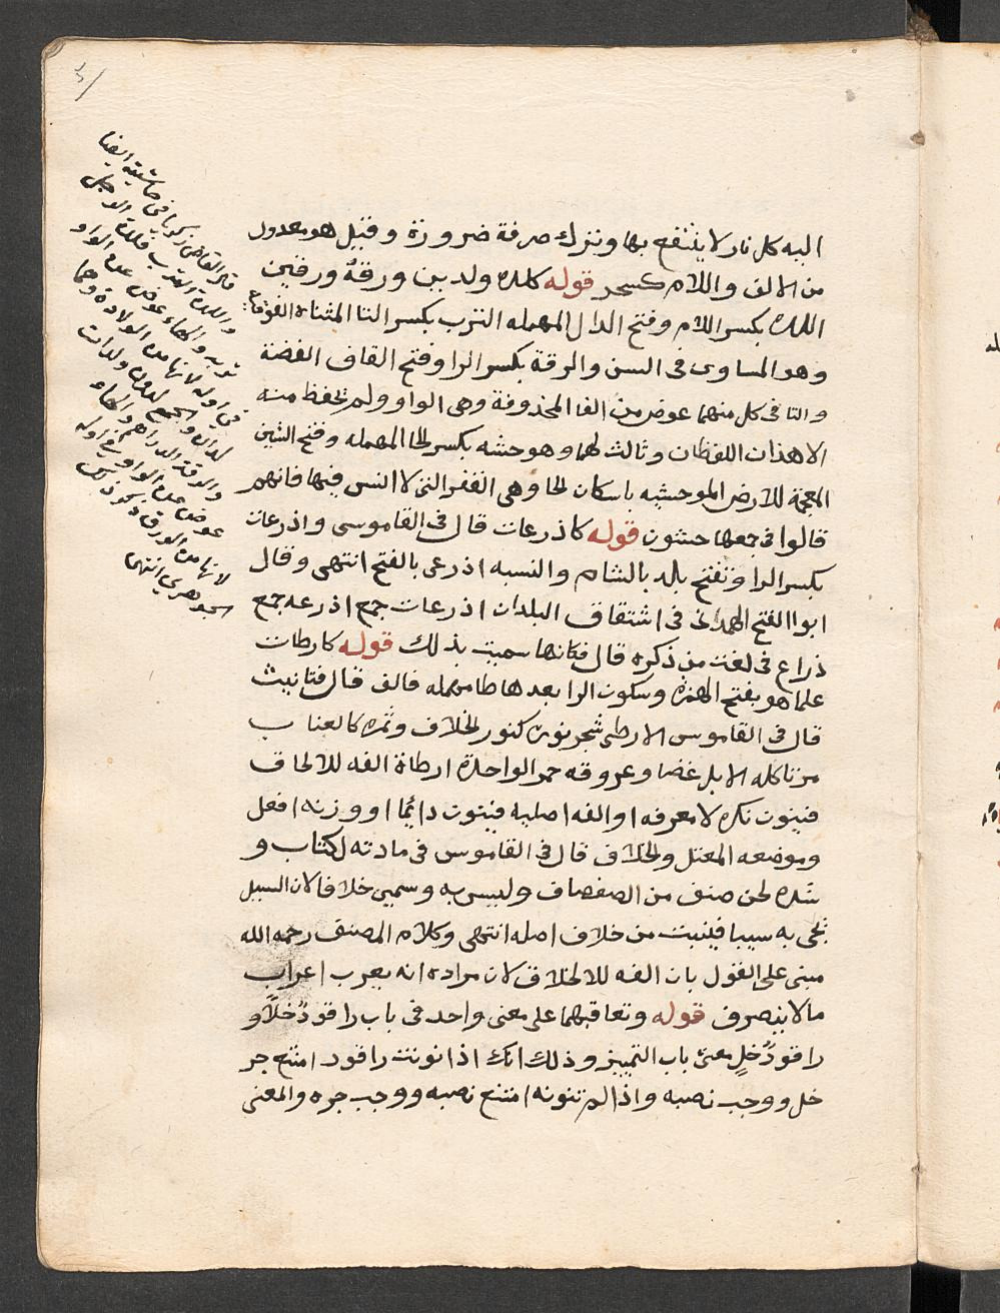 اليه كل نار لا ينتفع بها وترك صرفة ضرورة وقيل هو معدول
من الالف واللام كسحر قوله كلدة ولدين ورقة ورقين
اللدة بكسر اللام وفتح الدال المهمله الترب بكسر التا المثناة الفوقانيه
وهو المساوى فى السن والرقة بكسر الرا وفتح القاف الفضة
والتا فى كل منهما عوض من الفا المحذوفة وهى الواو ولم يحفظ منه
الا هذان اللفظان وثالث لهما وهو حشه بكسر الحا المهمله وفتح الشين
المعجمة للارض الموحشيه باسكان الحا وهى القفر التى لا انس فيها فانهم
قالوا فى جمعها حشون قوله كاذرعات قال فى القاموسى واذرعات
بكسر الرا وتفتح بلد بالشام والنسبه اذرعى بالفتح انتهى وقال
ابوا الفتح الهمدانى فى اشتقاق البلدان اذرعات جمع اذرعه جمع
ذراع فى لغت من ذكره قال فكانها سميت بذلك قوله كارطات
علما هو بفتح الهمزة وسكون الرا بعدها طا مهمله فالف قال فتانيث
قال فى القاموس الارطى شجر نوره كنور الخلاف وثمره كالعناب
مر تاكله الابل غضا وعروقه حمر الواحدة ارطاة الفه للالحاق
فينون نكره لا معرفه او الفه اصلية فينون دائما او وزنه افعل
وموضعه المعتل والخلاف قال فى القاموس فى مادته لكتاب و
شده لحن صنف من الصفصاف وليس به وسمى خلافا لان السيل
يجى به سيبا فينبت من خلاف اصله انتهى وكلام المصنف رحمه الله
مبنى على القول بان الفه للالحلاق لان مراده انه يعرب اعراب
مالاينصرف قوله وتعاقبهما على معنى واحد فى باب راقود خلاًّ و
راقودُ خلٍ معنى باب التمييز وذلك انك اذا نونت راقود امتنع جر
خل ووجب نصبه واذا لم تنونه امتنع نصبه ووجب جره والمعنى
قال القاضى زكريا فى حاشيته ايضا
واللدة الترب فلدة الرجل
تربه والهاء عوض عن الواو
فى اوله لانها من الولادة وهما
لدان والجمع لدون ولدات
والرقة الدراهم والهاء
عوض عن الواو فى اوله
لانها من الورق ذكر ذلك
الجوهرى انتهى